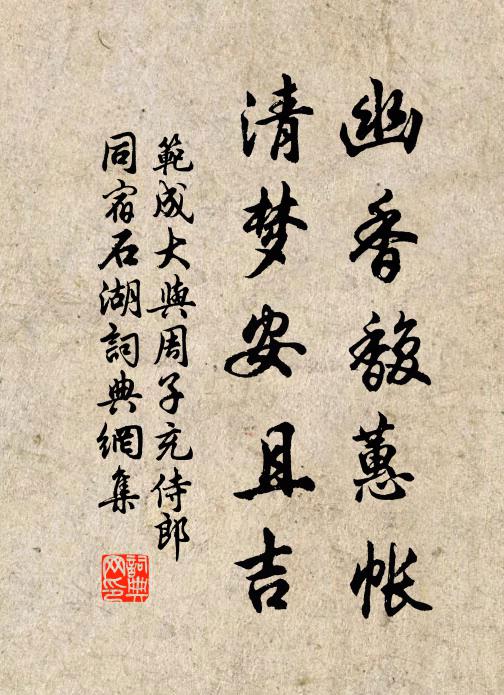 幽香馥蕙帐
清梦安且吉
範成大與周子充侍郎
同宿石湖詞典網集
詞典
网印